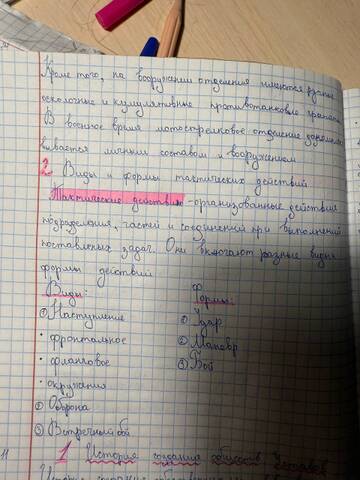 Кроме того, на вооружении отделения имеются ручные
осколочные и кумулятивные противотанковые гранаты
В военное время мотострелковое отделение доуком
вывается личным составом и вооружением
2 Виды и формы тактических действий
Тактические действия - организованные действия
подразделений, частей и соединений при выполнении
поставленых задач. Они включают разные виды
формы действий
Виды:
① Наступление
• фронтальное
• фланговое
• окружения
② Оборона
③ Встречный бой
Формы:
① Удар
② Маневр
③ Бой
11
1 История создания обществ уставов